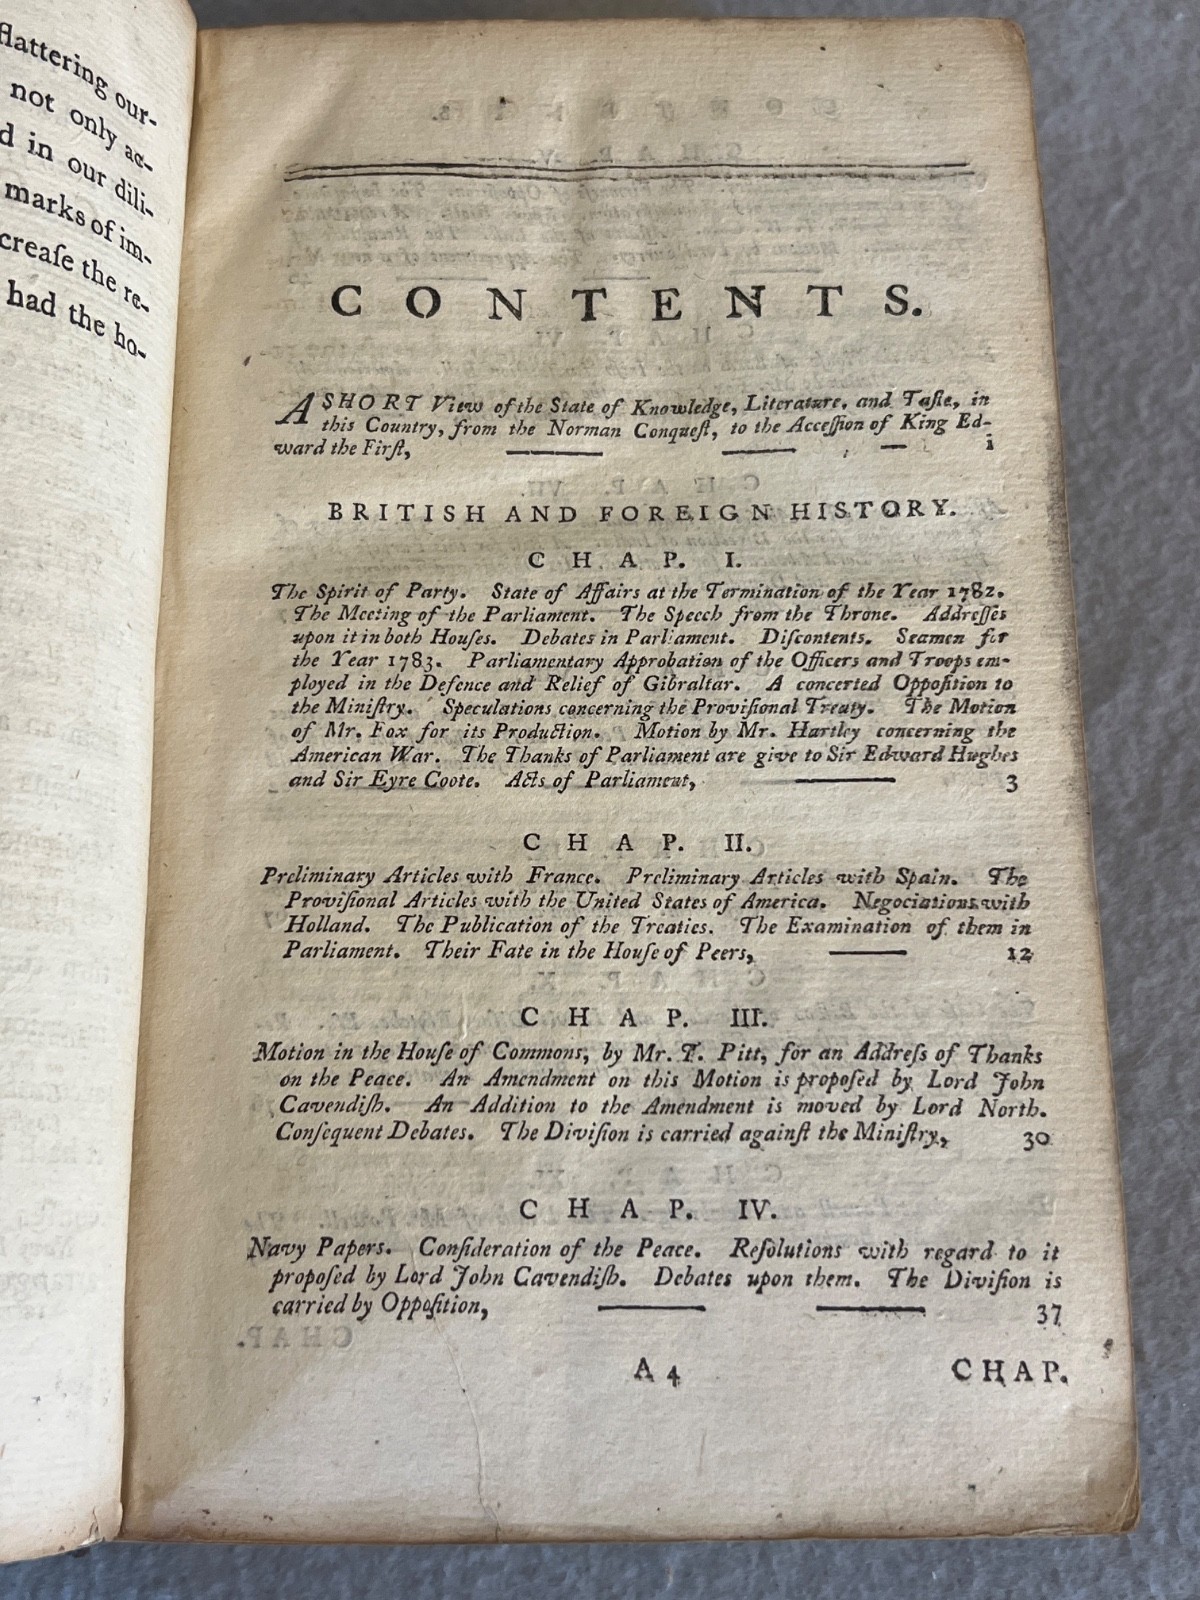 flattering our-
not only ac-
d in our dili-
marks of im-
creaſe the re-
had the ho-
CONTENTS.
A SHORT View of the State of Knowledge, Literature, and Taſte, in
this Country, from the Norman Conqueſt, to the Acceſſion of King Ed-
ward the Firſt, — — — i
BRITISH AND FOREIGN HISTORY.
CHAP. I.
The Spirit of Party. State of Affairs at the Termination of the Year 1782.
The Meeting of the Parliament. The Speech from the Throne. Addreſſes
upon it in both Houſes. Debates in Parliament. Diſcontents. Seamen for
the Year 1783. Parliamentary Approbation of the Officers and Troops em-
ployed in the Defence and Relief of Gibraltar. A concerted Oppoſition to
the Miniſtry. Speculations concerning the Proviſional Treaty. The Motion
of Mr. Fox for its Production. Motion by Mr. Hartley concerning the
American War. The Thanks of Parliament are give to Sir Edward Hughes
and Sir Eyre Coote. Acts of Parliament, — 3
CHAP. II.
Preliminary Articles with France. Preliminary Articles with Spain. The
Proviſional Articles with the United States of America. Negociations with
Holland. The Publication of the Treaties. The Examination of them in
Parliament. Their Fate in the Houſe of Peers, — 12
CHAP. III.
Motion in the Houſe of Commons, by Mr. T. Pitt, for an Addreſs of Thanks
on the Peace. An Amendment on this Motion is propoſed by Lord John
Cavendiſh. An Addition to the Amendment is moved by Lord North.
Conſequent Debates. The Diviſion is carried againſt the Miniſtry, 30
CHAP. IV.
Navy Papers. Conſideration of the Peace. Reſolutions with regard to it
propoſed by Lord John Cavendiſh. Debates upon them. The Diviſion is
carried by Oppoſition, — — 37
A 4 CHAP.